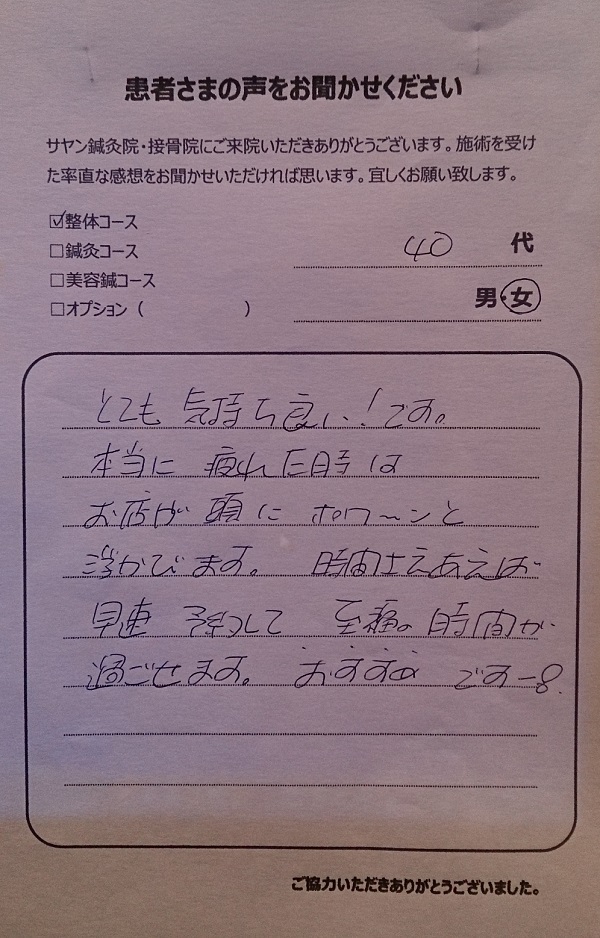 患者さまの声をお聞かせください
サヤン鍼灸院・接骨院にご来院いただきありがとうございます。施術を受け
た率直な感想をお聞かせいただければ思います。宜しくお願い致します。
☑整体コース
□鍼灸コース
□美容鍼コース
□オプション（　　　　　）
40 代
男・女
とても 気持ち良い！です。
本当に 疲れた時は
お店が 頭に ポワ〜ンと
浮かびます。 時間さえあえば
早速 予約して 至極の 時間が
過ごせます。 おすすめ ですー
ご協力いただきありがとうございました。